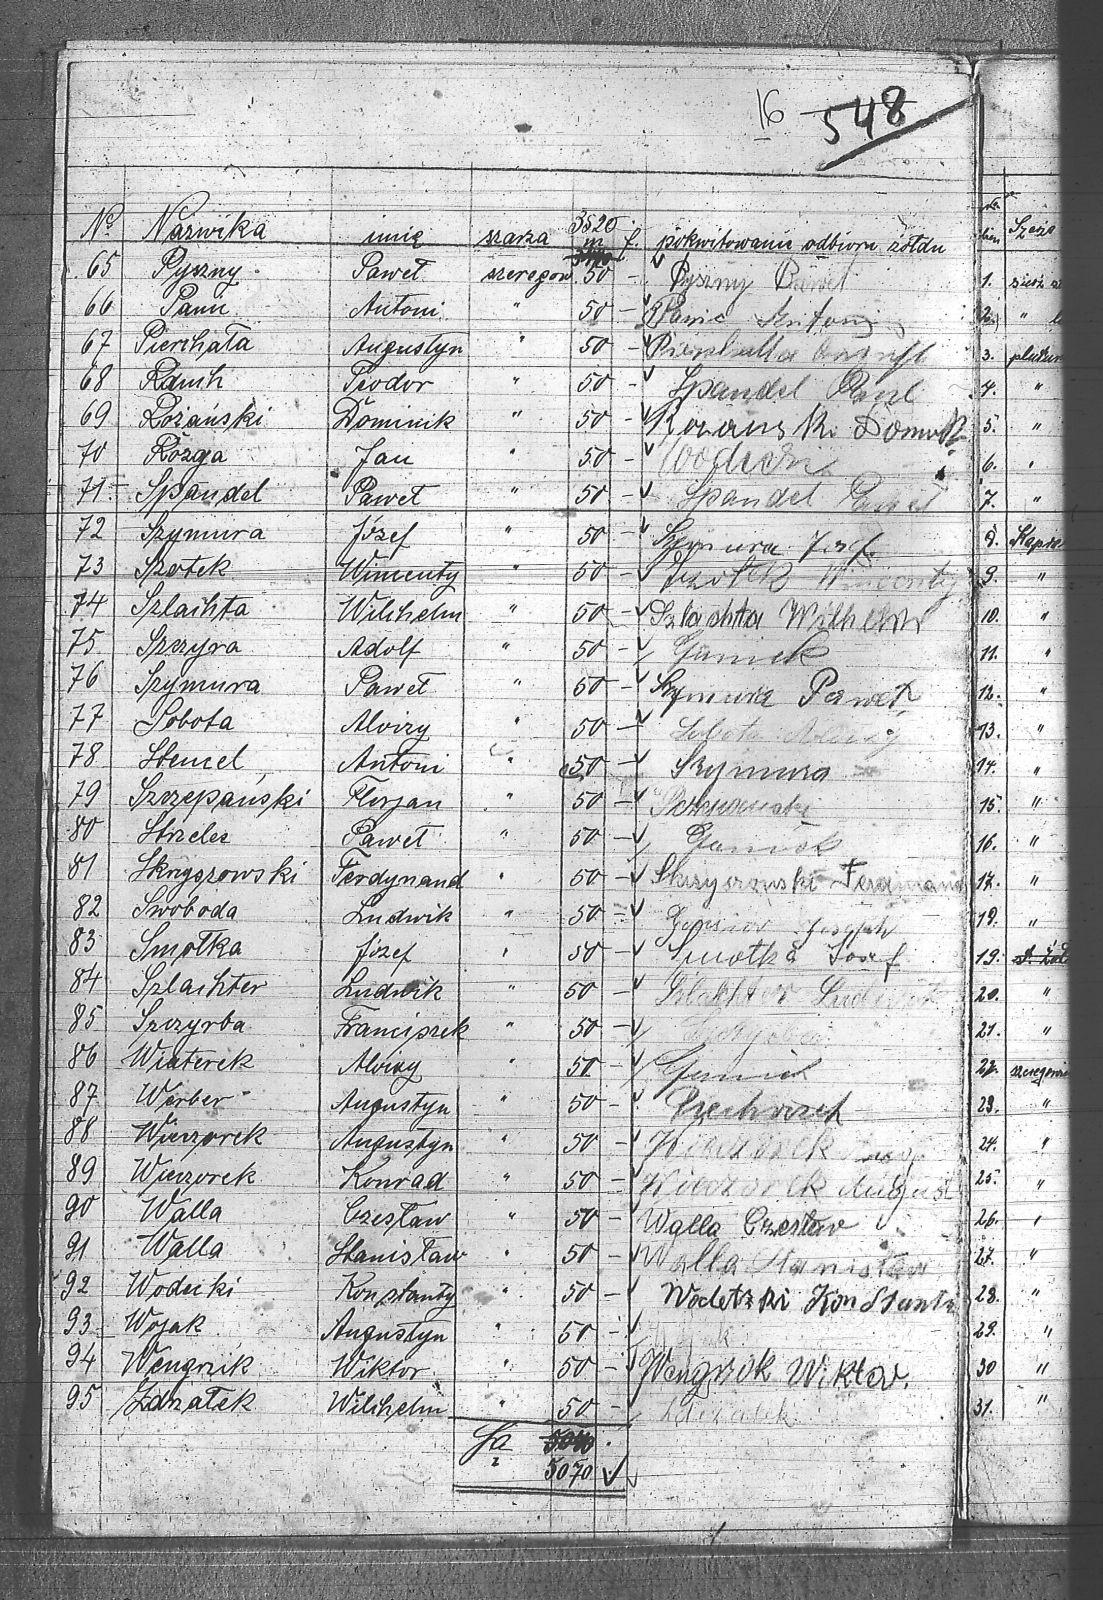 16 548
No Nazwiska imię szarża 3520 m f. pokwitowanie odbioru żołdu
65 Ryszny Paweł szeregow. 50 - Ryszny Paweł
66 Panic Antoni " 50 - Panic Antoni
67 Pierchała Augustyn " 50 - Pierchalla
68 Rauch Teodor " 50 - Spandel Pawel
69 Rożański Dominik " 50 - Rożański Domin
70 Rózga Jan " 50 - Wodecki
71 Spandel Paweł " 50 - Spandel Paweł
72 Szymura Józef " 50 - Szymura Józef
73 Szotek Wincenty " 50 - Szotek Wincenty
74 Szlachta Wilhelm " 50 - Szlachta Wilhelm
75 Szczyra Adolf " 50 - Ganick
76 Szymura Paweł " 50 - Szymura Paweł
77 Sobota Aloizy " 50 - Sobota Aloizy
78 Stencel Antoni " 50 - Szymura
79 Szczepański Florjan " 50 - Szczepański
80 Strzelec Paweł " 50 - Ganick
81 Skrzyszowski Ferdynand " 50 - Skrzyszowski Ferdinand
82 Swoboda Ludwik " 50 - Joseph
83 Smołka Józef " 50 - Smolka Josef
84 Szlachter Ludwik " 50 - Szlachter Ludwik
85 Szczyrba Franciszek " 50 -
86 Wiaterek Aloizy " 50 - Ganick
87 Werber Augustyn " 50 -
88 Wieczorek Augustyn " 50 - Wieczorek
89 Wieczorek Konrad " 50 - Wieczorek August
90 Walla Czesław " 50 - Walla Czesław
91 Walla Stanisław " 50 - Walla Stanisław
92 Wodecki Konstanty " 50 - Wodetzki Konstanti
93 Wojak Augustyn " 50 -
94 Wengrzik Wiktor " 50 - Wengrzik Wiktor.
95 Zdziałek Wilhelm " 50 -
Sa 5070
No Szarż
1.
2. "
3. pluton
4. "
5. "
6. "
7. "
8. Kapral
9. "
10. "
11. "
12. "
13. "
14. "
15. "
16. "
17. "
18. "
19.
20. "
21. "
22. szeregowi
23. "
24. "
25. "
26. "
27. "
28. "
29. "
30 "
31. "